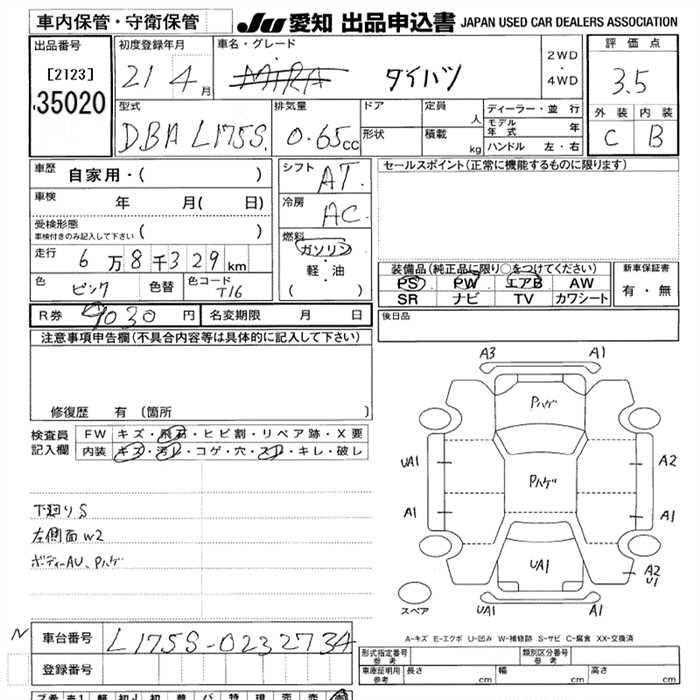 車内保管・守衛保管
JU 愛知 出品申込書 JAPAN USED CAR DEALERS ASSOCIATION
出品番号
[2123]
35020
初度登録年月
21 4 月
車名・グレード
MIRA ダイハツ
2WD
・
4WD
評価点
3.5
外装 内装
C B
型式
DBA L175S
排気量
0.65cc
ドア
形状
定員
人
積載
kg
ディーラー・並行
モデル年式 年
ハンドル 左・右
車歴
自家用・( )
車検
年 月( 日)
受検形態
車検付きのみ記入して下さい ( )
走行
6万8千329km
色
ピンク
色替
色コード
T16
シフト
AT
冷房
AC
燃料
ガソリン
・
軽・油
( )
セールスポイント(正常に機能するものに限ります)
装備品(純正品に限り○をつけてください)
PS PW エアB AW
SR ナビ TV カワシート
新車保証書
有・無
R券 9030 円
名変期限 月 日
後日品
注意事項申告欄(不具合内容等は具体的に記入して下さい)
修復歴 有 (箇所 )
検査員
記入欄
FW キズ・飛石・ヒビ割・リペア跡・X要
内装 キズ・汚レ・コゲ・穴・スレ・キレ・破レ
下廻りS
左側面W2
ボディーAU、Pハゲ
A3 A1
Pハゲ
UA1 Pハゲ A2
A1 A1
UA1
A2
U1
スペア
UA1 A1
A-キズ E-エクボ U-凹み W-補修跡 S-サビ C-腐食 XX-交換済
N
車台番号 L175S-0232734
登録番号
形式指定番号
参考
類別区分番号
参考
車庫証明用
参考
長さ cm 幅 cm 高さ cm